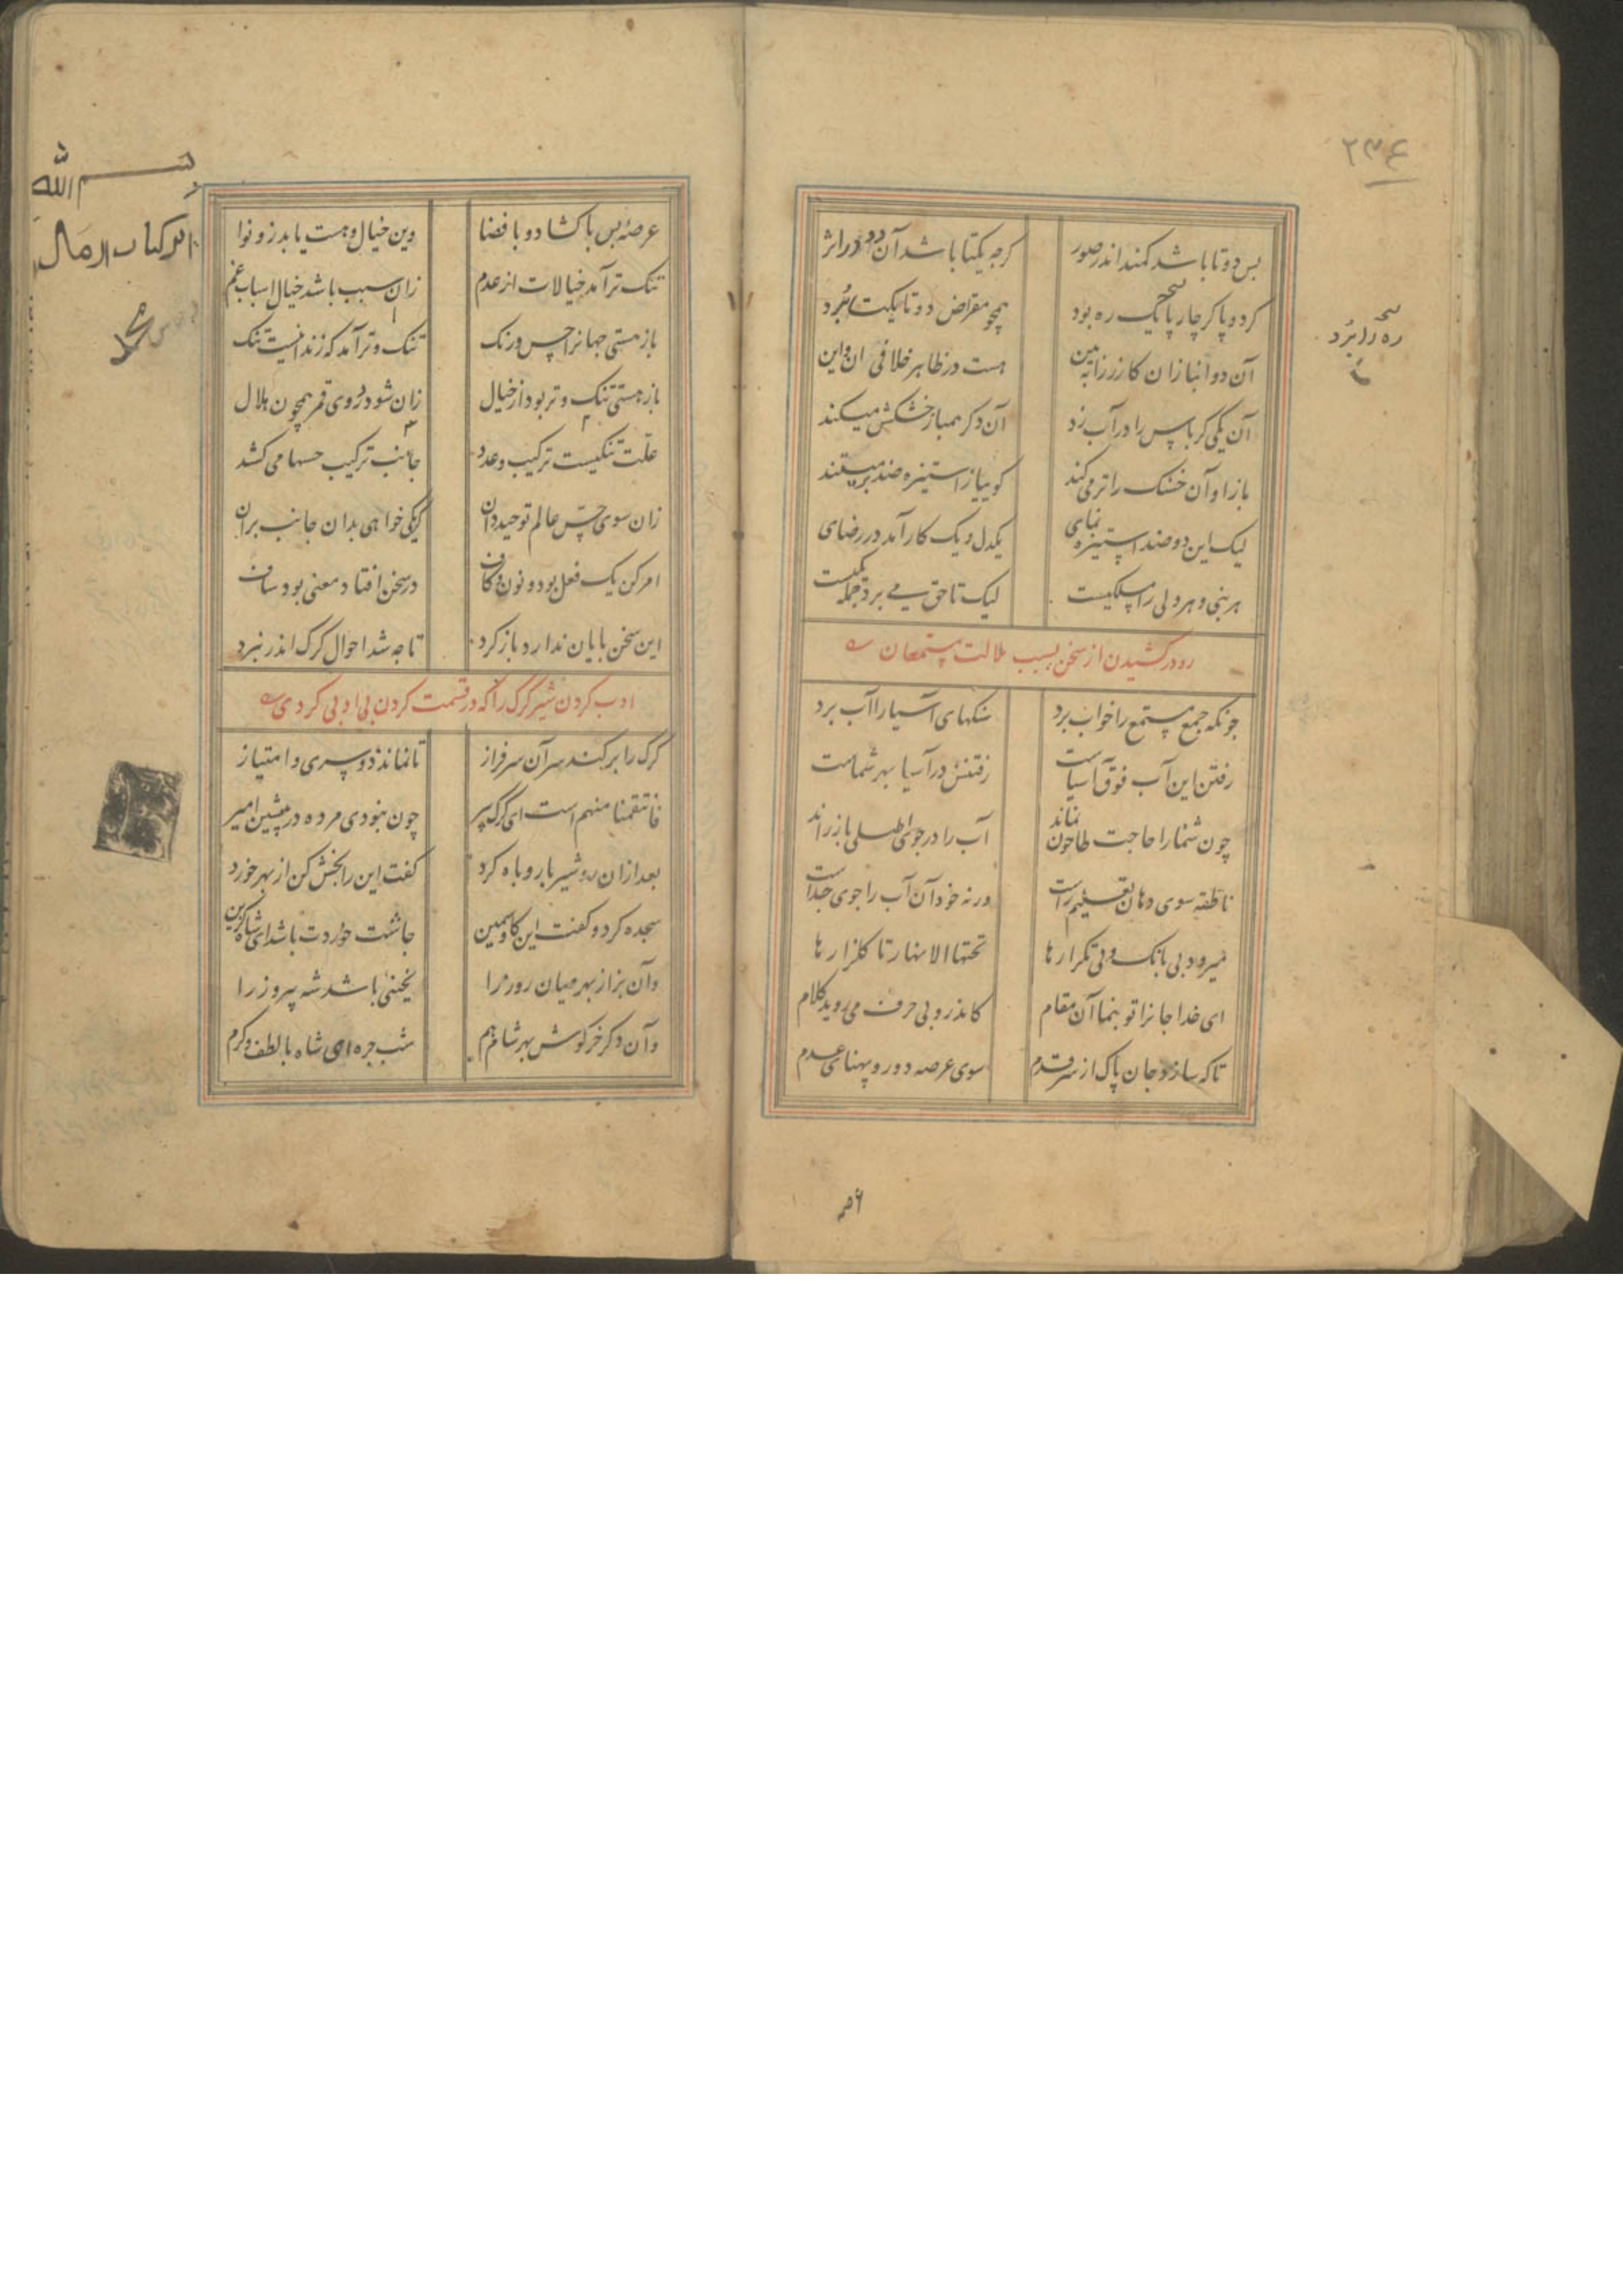 ۲۳۶
بس دوتا باشد کمند اندر صور کرچه یکتا باشد آن دو در اثر
کر دو پا کر چار پا یک ره بود همچو مقراض دوتا یکتا برد
ره را برد
آن دو انبازان کازر را ببین هست در ظاهر خلافی آن و این
آن یکی کرباس را در آب زد آن دکر همباز خشکش میکند
باز او آن خشک را تر می کند کوییا ز استیزه ضد بر میتند
لیک این دو ضد استیزه نمای یکدل و یک کار آمد در رضای
هر نبی و هر ولی را مسلکیست لیک تا حق می برد جمله یکیست
رو در کشیدن از سخن بسبب ملالت مستمعان
چونکه جمع مستمع را خواب برد سنکهای آسیا را آب برد
رفتن این آب فوق آسیاست رفتنش در آسیا بهر شماست
چون شما را حاجت طاحون نماند آب را در جوی اصلی باز راند
ناطقه سوی دهان تعلیم راست ورنه خود آن آب را جوی جداست
میرود بی بانک و بی تکرارها تحتها الانهار تا کلزارها
ای خدا جانرا تو بنما آن مقام کاندرو بی حرف می روید کلام
تا که سازد جان پاک از سر قدم سوی عرصه دور و پهنای عدم
بسم الله
عرصهٔ بس با کشاد و با فضا وین خیال و هست یابد زو نوا
تنک تر آمد خیالات از عدم زان سبب باشد خیال اسباب غم
باز هستی جهانرا حس و رنک تنک و تر آمد که زندانیست تنک
باز هستی تنک و تر بود از خیال زان شود در وی قمر همچون هلال
علت تنکیست ترکیب و عدد جانب ترکیب حسها می کشد
زان سوی حس عالم توحید دان کر یکی خواهی بدان جانب بران
امر کن یک فعل بود و نون و کاف در سخن افتاد معنی بود صاف
این سخن پایان ندارد باز کرد تا چه شد احوال کرک اندر نبرد
ادب کردن شیر کرک را که در قسمت کردن بی ادبی کردی
کرک را برکند سر آن سرفراز تا نماند دو سری و امتیاز
فانتقمنا منهم است ای کرک پیر چون نبودی مرده در پیشین امیر
بعد از آن رو شیر با روباه کرد کفت این را بخش کن از بهر خورد
سجده کرد و کفت این کاو سمین چاشت خوردت باشد ای شاه کزین
وآن بز از بهر میان روز را یخنیی باشد شه پیروز را
وآن دکر خرکوش بهر شام هم شب چره ای شاه با لطف و کرم